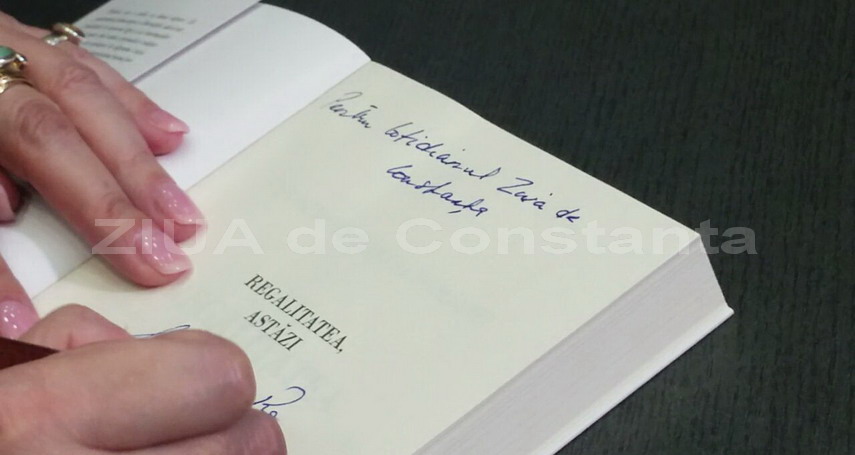 Pentru cotidianul Ziua de
Constanța
ZIUA de Constanta
REGALITATEA,
ASTĂZI